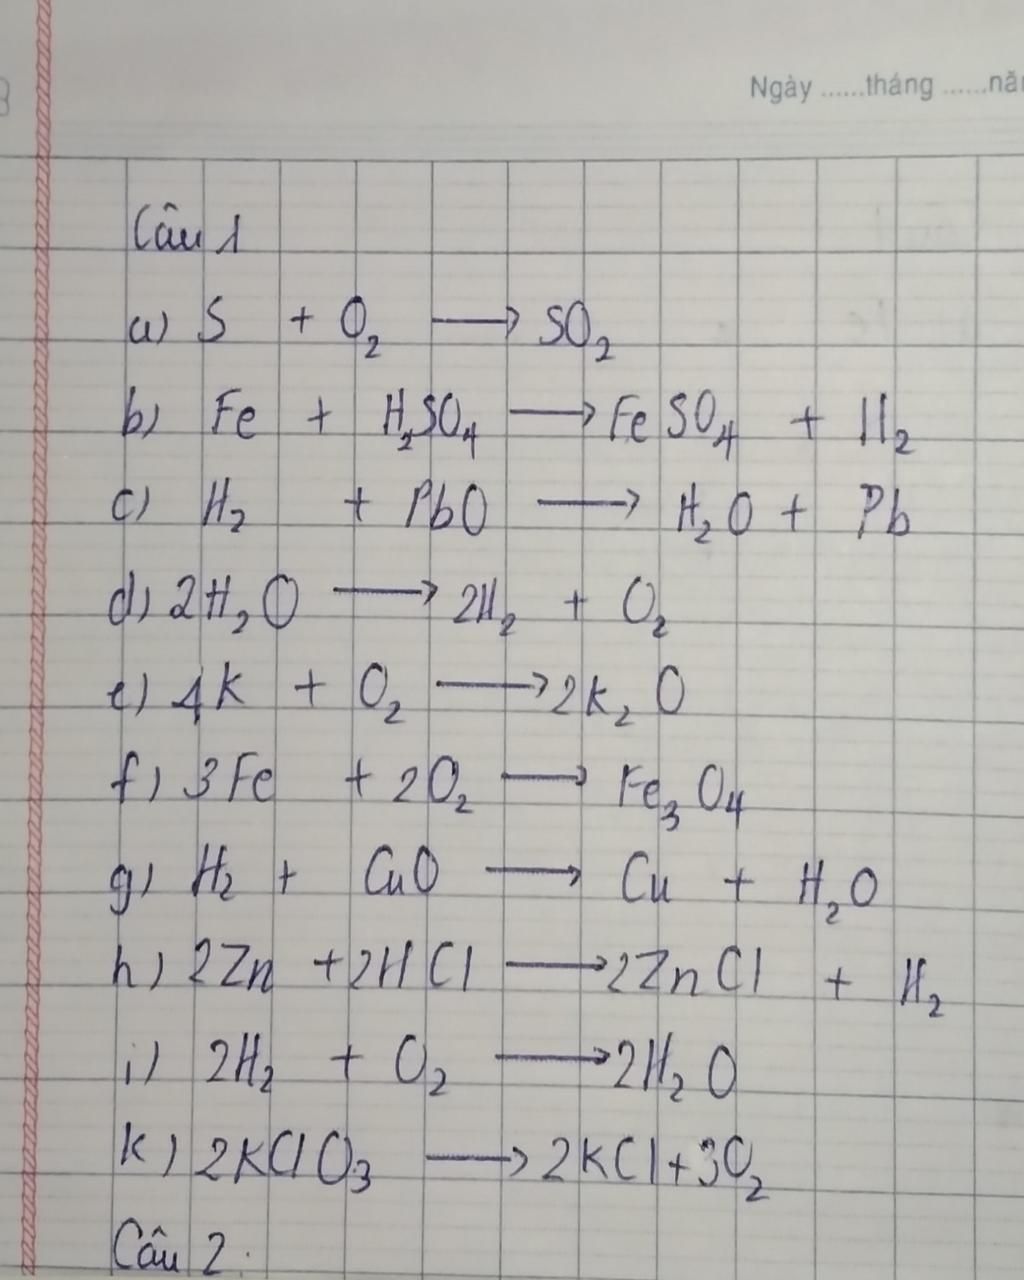 Ngày ......tháng ......nă
Câu 1
a) S + O₂ ⟶ SO₂
b) Fe + H₂SO₄ ⟶ FeSO₄ + H₂
c) H₂ + PbO ⟶ H₂O + Pb
d) 2H₂O ⟶ 2H₂ + O₂
e) 4K + O₂ ⟶ 2K₂O
f) 3Fe + 2O₂ ⟶ Fe₃O₄
g) H₂ + CuO ⟶ Cu + H₂O
h) 2Zn + 2HCl ⟶ 2ZnCl + H₂
i) 2H₂ + O₂ ⟶ 2H₂O
k) 2KClO₃ ⟶ 2KCl + 3O₂
Câu 2.